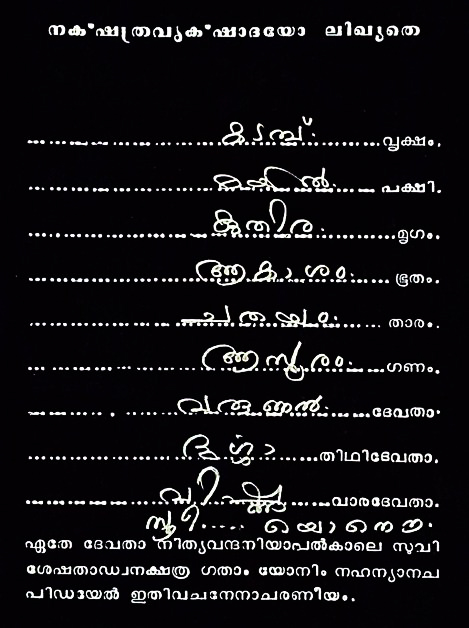 നക്ഷത്രവൃക്ഷാദയോ ലിഖ്യതെ
കടമ്പ് വൃക്ഷം.
മയിൽ പക്ഷി.
കുതിര മൃഗം.
ആകാശം ഭൂതം.
ചതയം താരം.
ആസുരം ഗണം.
വരുണൻ ദേവതാ
ദുർഗ്ഗാ തിഥിദേവതാ.
വാരദേവതാ.
സ്ത്രീ യോനെ
ഏതേ ദേവതാ നിത്യവന്ദനിയാപൽകാലെ സുവി
ശേഷതാഡ്വനക്ഷത്ര ഗതാം. യോനിം നഹന്യാനച
പിഡയേൽ ഇതിവചനേനാചരണീയം..